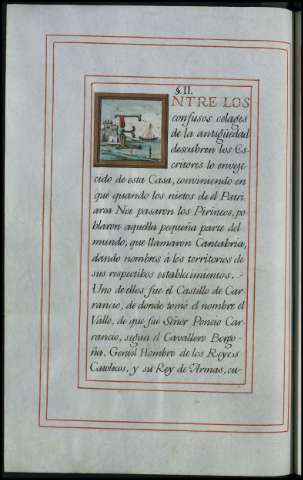 §.II.
ENTRE LOS
confusos celages
de la antigüedad
descubren los Es-
critores lo enveje-
cido de esta Casa, conviniendo en
que quando los nietos de el Patri-
arca Noe pasaron los Pirineos, po-
blaron aquella pequeña parte del
mundo, que llamaron Cantabria,
dando nombres à los territorios de
sus respectibos establecimientos.
Uno de ellos fue el Castillo de Car-
rancio, de donde tomó el nombre el
Valle, de que fue Señor Poncio Car-
rancio, segun el Cavallero Borgo-
ña, Gentil Hombre de los Reyes
Catolicos, y su Rey de Armas, cu-